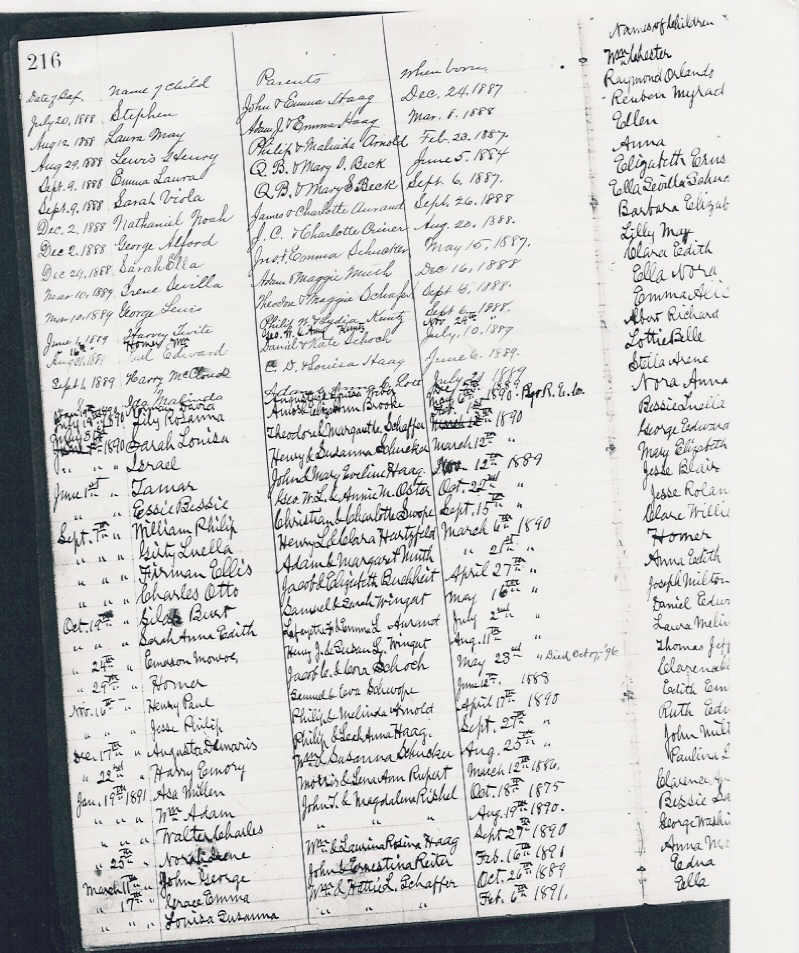 216
Date of Bap. Name of Child Parents When born
July 20, 1888 Stephen John & Emma Haag Dec. 24. 1887
Aug 12 1888 Laura May Adam J. & Emma Haag Mar. 8. 1888
Aug 29. 1888 Lewis Henry Philip & Malinda Arnold Feb. 23. 1887.
Sept. 9. 1888 Emma Laura Q. B. & Mary S. Beck June 5. 1884
Sept. 9. 1888 Sarah Viola Q. B. & Mary S. Beck Sept. 6. 1887.
Dec. 2. 1888 Nathaniel Noah James & Charlotte Aurand Sept. 26. 1888
Dec 2. 1888 George Alford J. C. & Charlotte Criner Aug. 20. 1888.
Dec 24, 1888 Sarah Ella & Emma Schucker May 15, 1887.
Mar 10, 1889 Irene Sevilla Adam & Maggie Muth Dec 16, 1888
Mar 10. 1889 George Lewis Theodore & Maggie Schafer Sept 8. 1888.
June 1889 Harvey Philip & Lydia Kuntz Sept 1888.
Homer Wm Nov. 28th "
Edward Daniel & Kate Schoch July, 10. 1889
Sept 1 1889 Harry McCloud C. D. & Louisa Haag June 6. 1889.
Ida Malinda July 21 1889
Lily Rosanna Brooke
Sarah Louisa Theodore & Margaret Schaffer 1890
" " " Israel Henry & Susanna Schucker March 12th "
June 1st " Tamar John & Mary Eveline Haag. 12th 1889
" " " Essie Bessie Geo. W. L. & Annie M. Oster Oct. 29th "
Sept. 7th " William Philip Christian & Charlotte Swope Sept. 15th "
" " " Girty Luella Henry L. & Clara Hartzfeld March 6th 1890
" " " Firman Ellis Adam & Margaret Muth " 21st "
" " " Charles Otto Jacob & Elizabeth Buchheit April 27th "
Oct. 19th " Silas Burt Samuel & Sarah Wingat May 16th "
" " " Sarah Anne Edith Lafayette & Emma L. Aurand July 2nd "
" 24th " Emerson Monroe, Henry J. & Susan Wingat Aug. 11th "
" 29th " Homer Jacob C. & Cora Schoch May 23rd " Died Oct 96
Nov. 16th " Henry Paul Samuel & Eva Schwope June 1888
" " " Jesse Philip Philip & Melinda Arnold April 17th 1890
Dec. 17th " Augusta Demaris Philip & Leah Anna Haag. Sept. 27th "
" 22nd " Harry Emory Wm & Susanna Schucker Aug. 25th "
Jan. 19th 1891 Asa Millen Morris & Lena Ann Rupert March 12th 1886.
" " " Wm Adam John T. & Magdalena Rishel Oct. 18th 1875
" " " Walter Charles " " " Aug. 19th 1890.
" 25th " Norah Irene Wm & Laurina Rosina Haag Sept 27th 1890
March 11th " John George John & Ernestina Reiter Feb. 16th 1891
" 17th " Grace Emma Wm & Hettie L. Schaffer Oct. 26th 1889
" " " Louisa Susanna " " " Feb. 6th 1891.
Names of Children
Wm Chester
Raymond Orlando
Reuben
Ellen
Anna
Elizabeth
Ella Sevilla
Barbara Elizab
Lilly May
Clara Edith
Ella Nora
Emma
Albert Richard
Lottie Belle
Stella Irene
Nora Anna
Bessie Luella
George Edward
Mary Elizabeth
Jesse Blair
Jesse Rolan
Clare Willie
Homer
Anna Edith
Joseph Milton
Daniel Edw
Laura Melin
Thomas Jeff
Clarence
Edith Em
Ruth Edn
John Milt
Paulina
Clarence
Bessie
George Washi
Anna
Edna
Ella